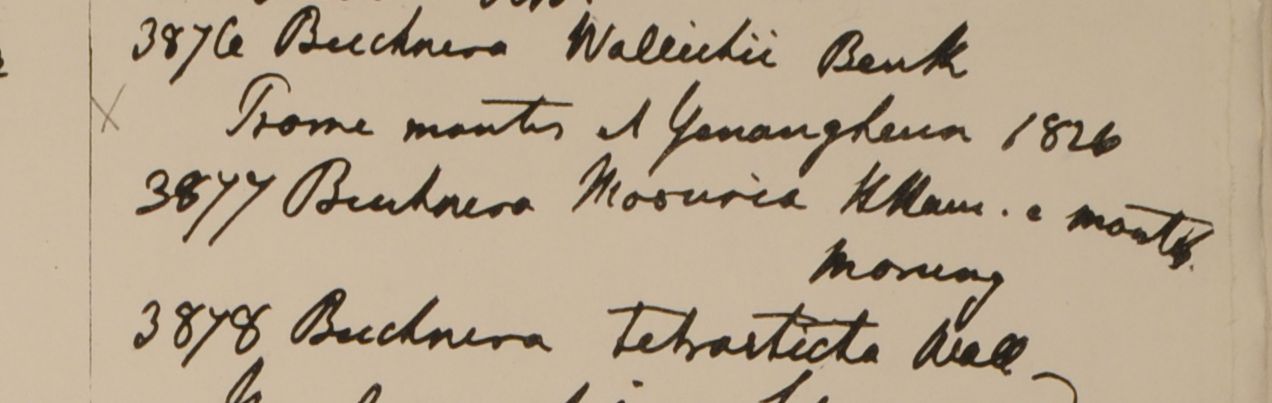 3876 Buchnera Wallichii Benth
Prome montis et Yenangheun 1826
3877 Buchnera Hham. e montib.
Morung
3878 Buchnera tetrasticta Wall